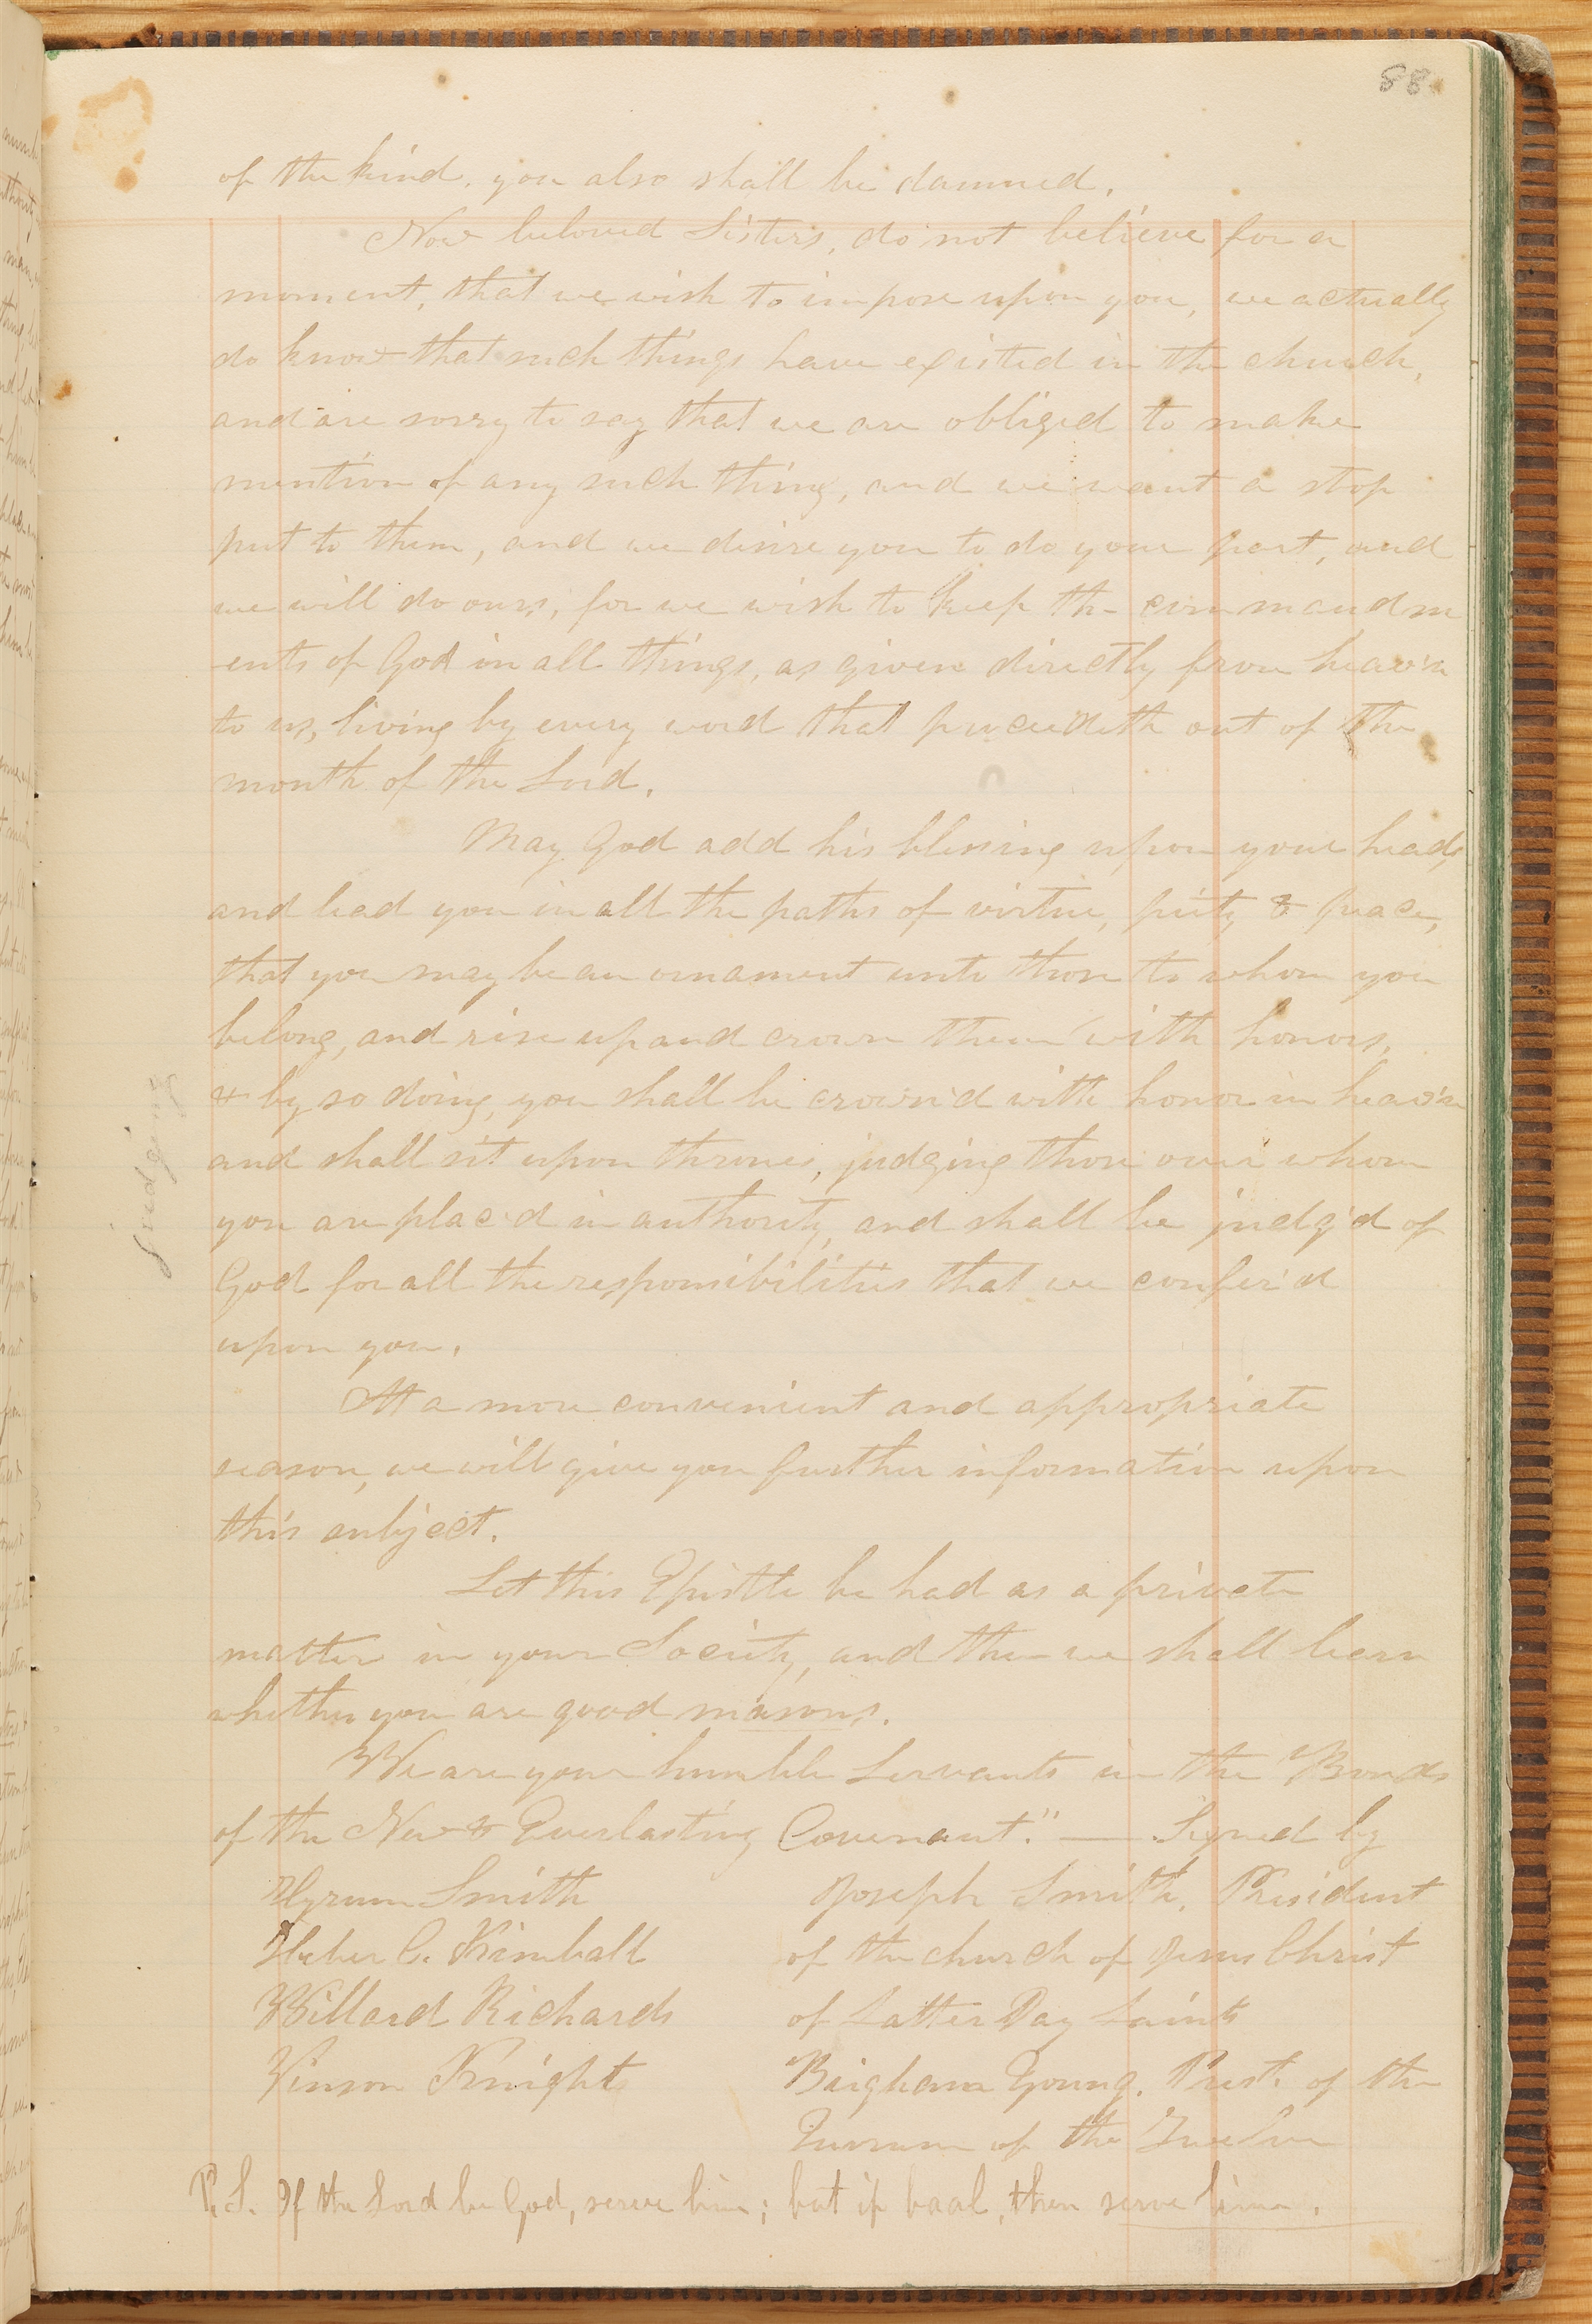 88.
of the kind, you also shall be damned.
Now beloved Sisters, do not believe for a
moment, that we wish to impose upon you, we actually
do know that such things have existed in the church,
and are sorry to say that we are obliged to make
mention of any such thing, and we want a stop
put to them, and we desire you to do your part, and
we will do ours, for we wish to keep the commandm
ents of God in all things, as given directly from heav'n
to us, living by every word that proceedeth out of the
mouth of the Lord.
May God add his blessing upon your heads,
and lead you in all the paths of virtue, piety & peace,
that you may be an ornament unto those to whom you
belong, and rise up and crown them with honors,
& by so doing, you shall be crown'd with honor in heav'n
and shall sit upon thrones, judging those over whom
you are plac'd in authority, and shall be judg'd of
God for all the responsibilities that we confer'd
upon you.
judging
At a more convenient and appropriate
season, we will give you further information upon
this subject.
Let this Epistle be had as a private
matter in your Society, and then we shall learn
whether you are good masons.
We are your humble Servants in the Bonds
of the New & Everlasting Covenant." — Signed by
Hyrum Smith
Heber C. Kimball
Willard Richards
Vinson Knight
Joseph Smith, President
of the church of Jesus Christ
of Latter Day Saints
Brigham Young, Prest. of the
Quorum of the Twelve
P. S. If the Lord be God, serve him; but if baal, then serve him.